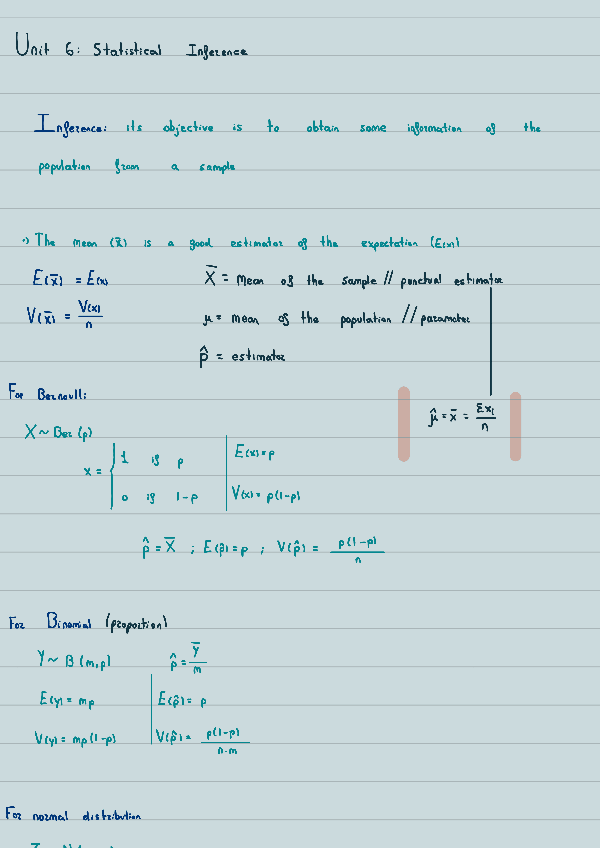 Unit 6: Statistical Inference
Inference: its objective is to obtain some information of the
population from a sample
·) The mean (x̄) is a good estimator of the expectation (E(x))
E(x̄) = E(x)
X̄ = mean of the sample // punctual estimator
V(x̄) = V(x)/n
μ = mean of the population // parameter
p̂ = estimator
For Bernoulli:
μ̂ = x̄ = Σxi/n
X ~ Ber (p)
x = { 1 if p
E(x) = p
0 if 1-p
V(x) = p(1-p)
p̂ = X̄ ; E(p̂) = p ; V(p̂) = p(1-p)/n
For Binomial (proportion)
Y ~ B (m,p)
p̂ = Ȳ/m
E(y) = mp
E(p̂) = p
V(y) = mp(1-p)
V(p̂) = p(1-p)/n·m
For normal distribution